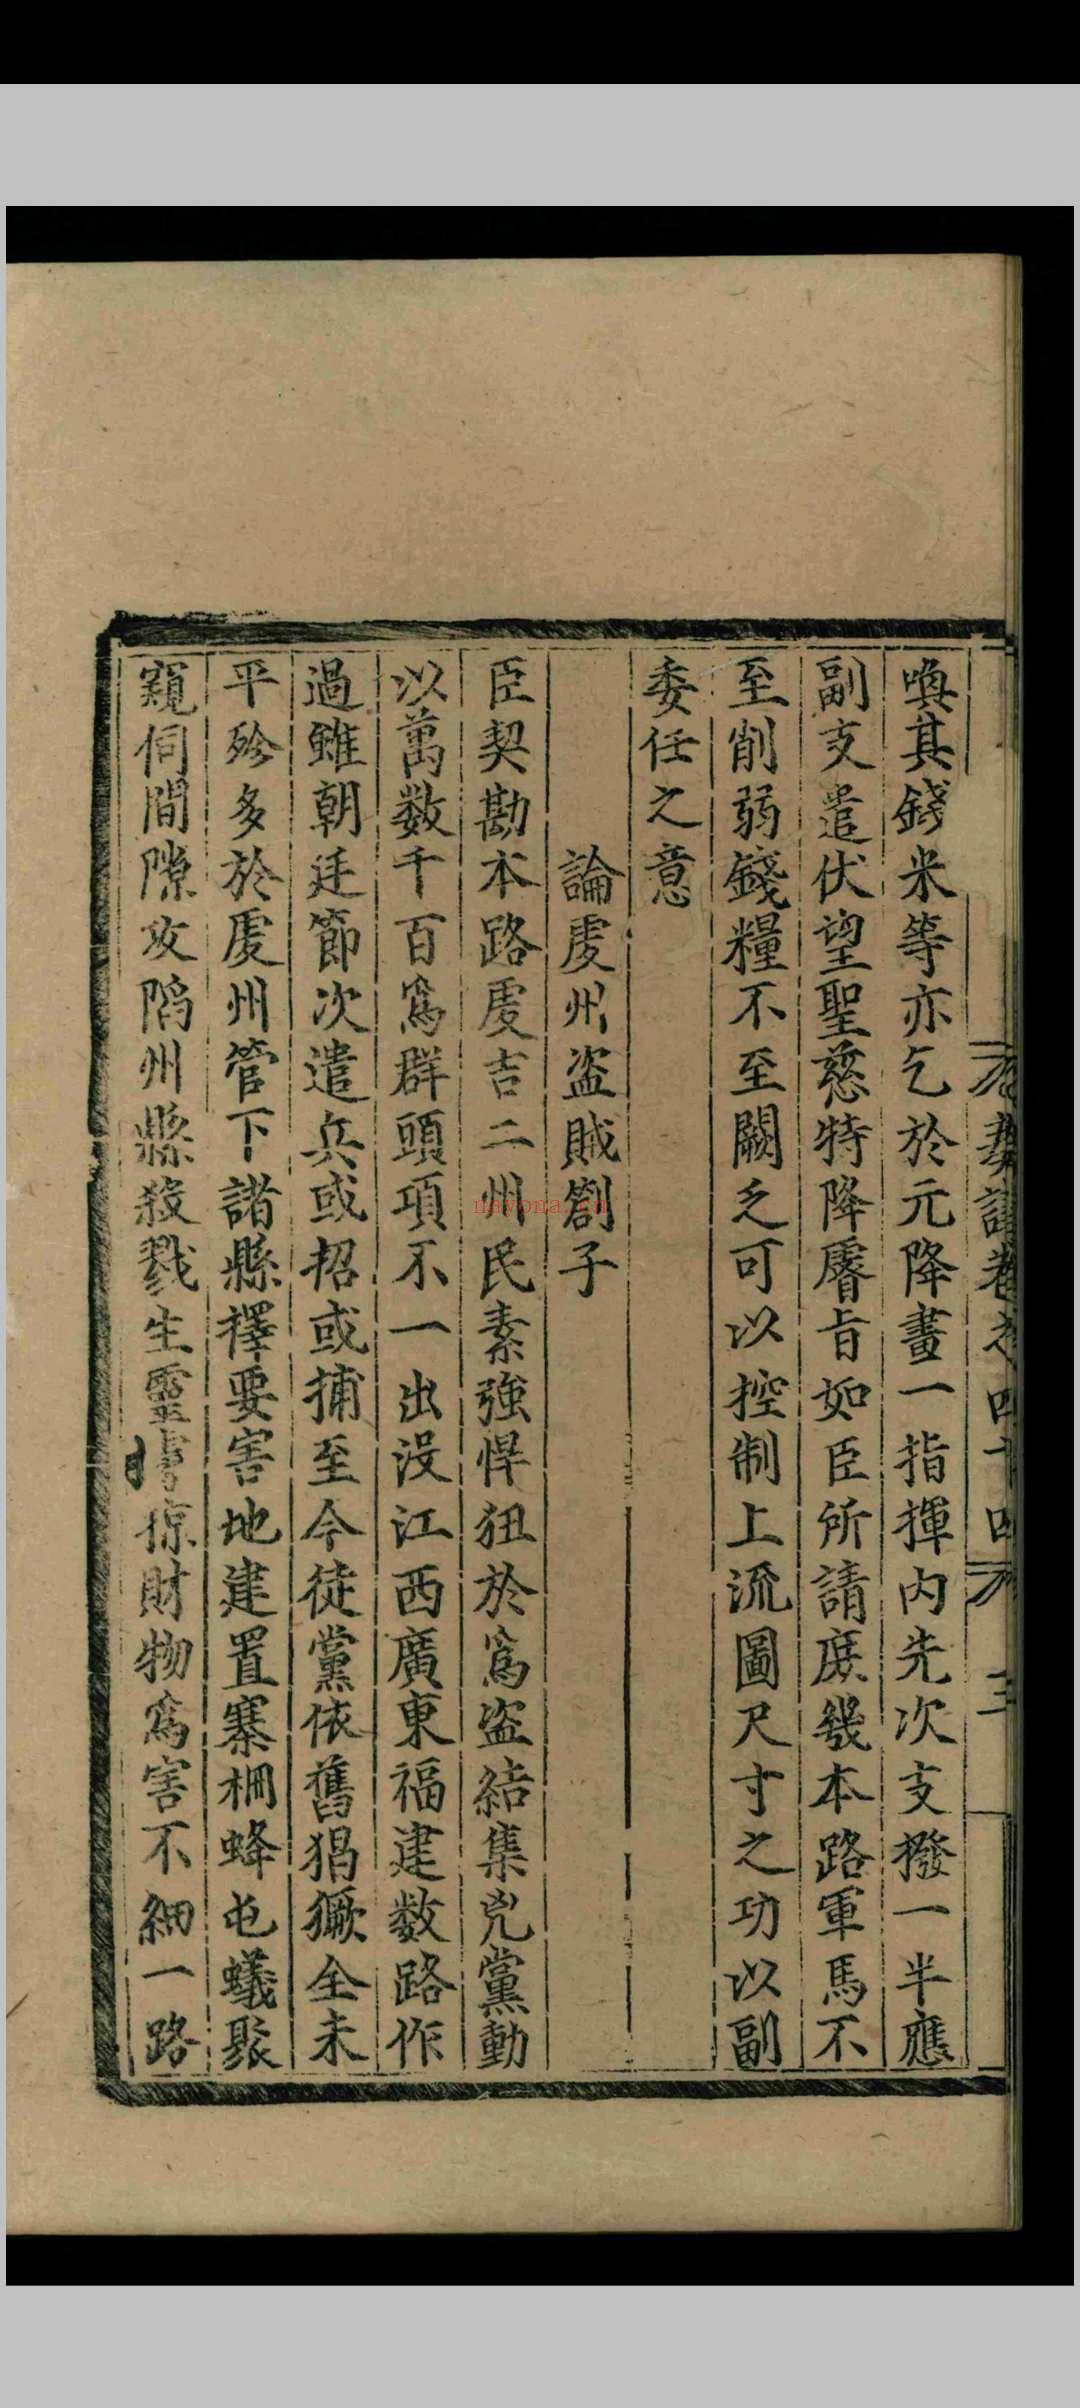 奏議卷之四十四 三
喚其錢米等亦乞於元降畫一指揮内先次支撥一半應
副支遣伏望聖慈特降睿旨如臣所請庶幾本路軍馬不
至削弱錢糧不至闕乏可以控制上流圖尺寸之功以副
委任之意
論虔州盜賊劄子
臣契勘本路虔吉二州民素強悍狃於爲盜結集兇黨動
以萬數千百爲群頭項不一出没江西廣東福建數路作
過雖朝廷節次遣兵或招或捕至今徒黨依舊猖獗全未
平殄多於虔州管下諸縣擇要害地建置寨柵蜂屯蟻聚
窺伺間隙攻陷州縣殺戮生靈掠財物爲害不細一路
nayona.cn